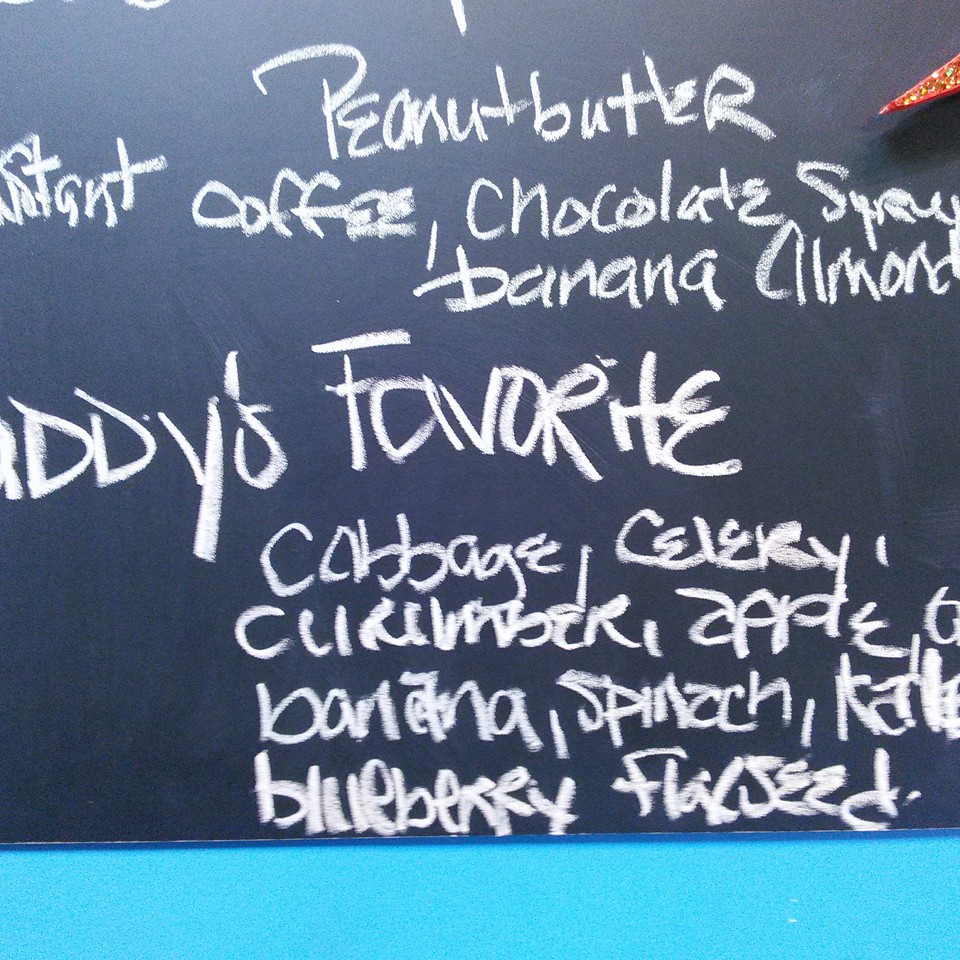 Peanutbutter
nstant Coffee, Chocolate Syru
banana Almond
aDDy's Favorite
Cabbage, Celery,
cucumber, apple,
banana, spinach, kale
blueberry flaxseed.